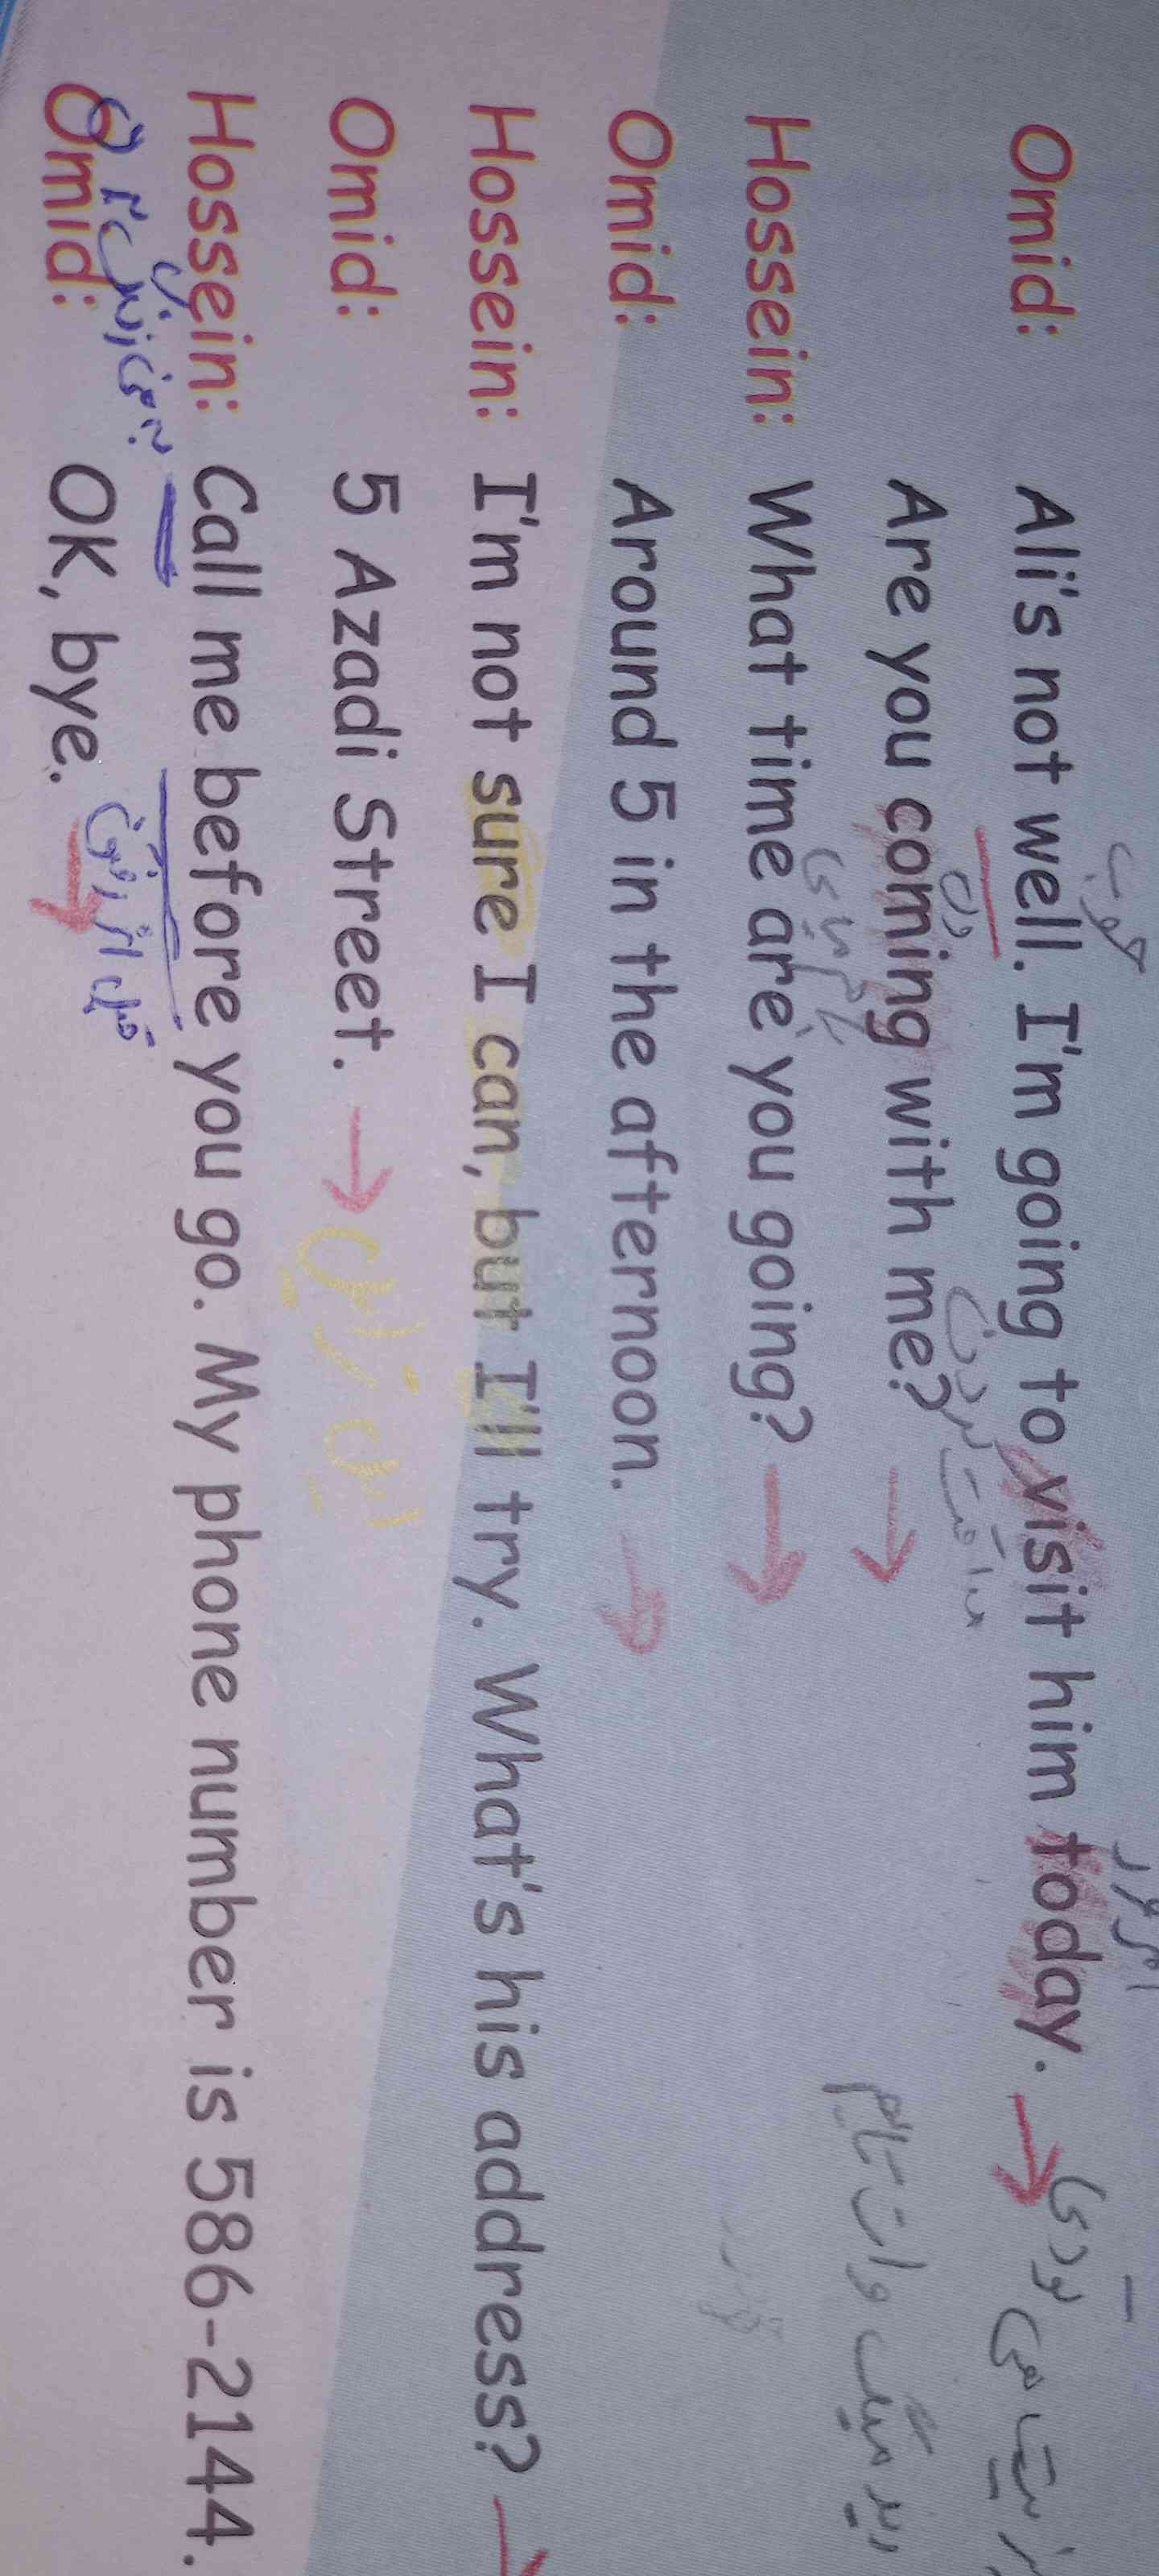 خوب
امروز
Omid: Ali's not well. I'm going to visit him today. →
ملاقت کردن
Are you coming with me? →
Hossein: What time are you going? →
Omid: Around 5 in the afternoon. →
Hossein: I'm not sure I can, but I'll try. What's his address? →
Omid: 5 Azadi Street. →
Hossein: Call me before you go. My phone number is 586-2144.
قبل از رفتن
Omid: OK, bye. →